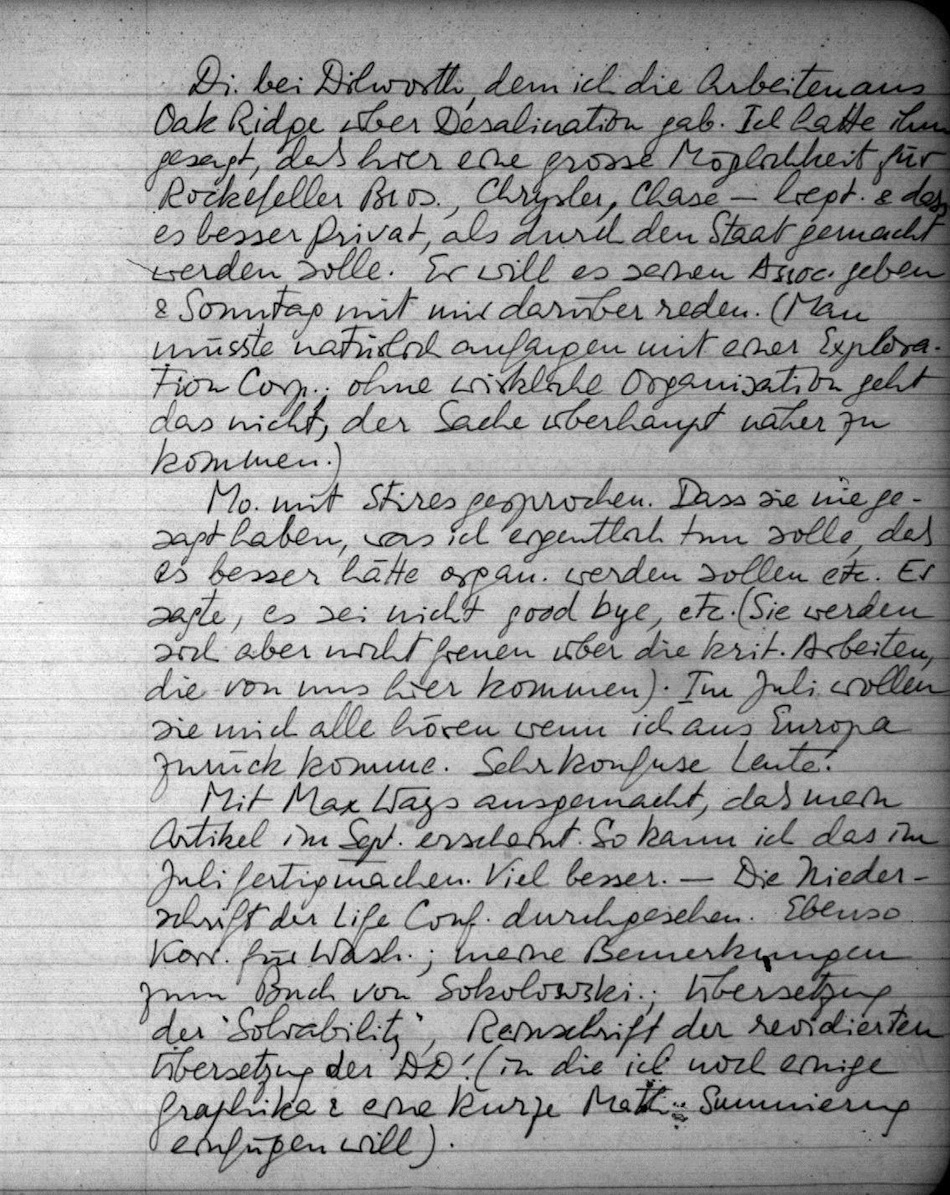 Di. bei Dilworth, dem ich die Arbeiten aus
Oak Ridge über Desalination gab. Ich hatte ihm
gesagt, das hier eine grosse Möglichkeit für
Rockefeller Bros., Chrysler, Chase — liegt. & dass
es besser privat, als durch den Staat gemacht
werden solle. Er will es seinen Assoc. geben
& Sonntag mit mir darüber reden. (Man
müsste natürlich anfangen mit einer Explora-
tion Corp.; ohne wirkliche Organisation geht
das nicht, der Sache überhaupt näher zu
kommen.)
Mo. mit Stires gesprochen. Dass sie nie ge-
sagt haben, was ich eigentlich tun solle, das
es besser hätte organ. werden sollen etc. Er
sagte, es sei nicht good bye, etc. (Sie werden
sich aber nicht freuen über die krit. Arbeiten,
die von uns hier kommen). Im Juli wollen
sie mich alle hören wenn ich aus Europa
zurück komme. Sehr konfuse Leute!
Mit Max Ways ausgemacht, das mein
Artikel im Sept. erscheint. So kann ich das im
Juli fertigmachen. Viel besser. — Die Nieder-
schrift der Life Conf. durchgesehen. Ebenso
Korr. für Wash.; meine Bemerkungen
zum Buch von Sokolowski.; Übersetzung
der "Solvability", Reinschrift der revidierten
Übersetzung der DD! (in die ich noch einige
Graphika & eine kurze Math. Summierung
einfügen will).